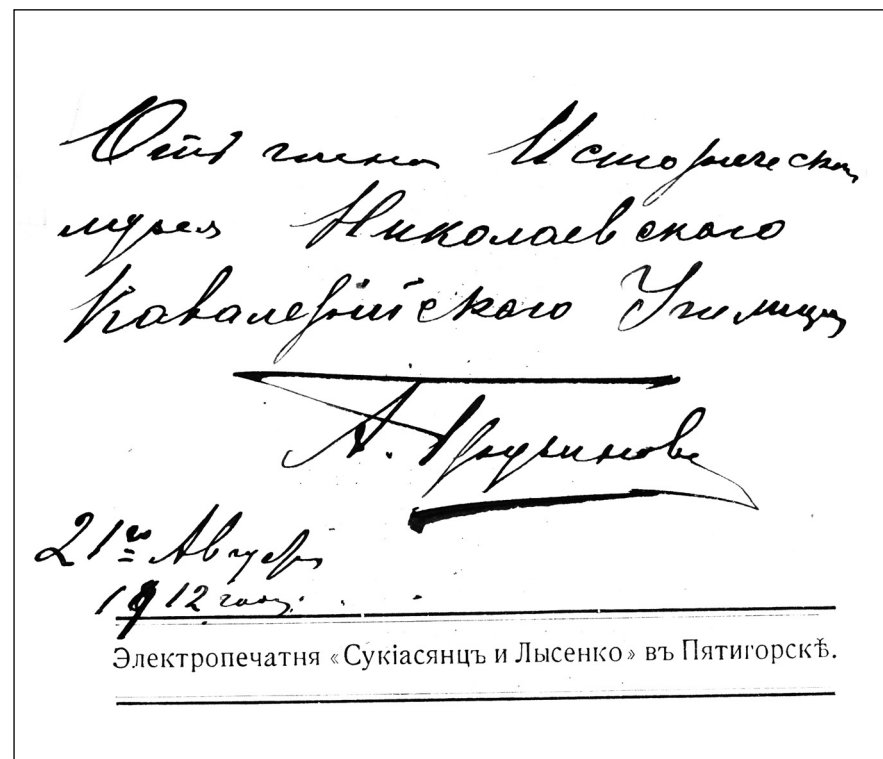 Отъ члена Историческаго
музея Николаевского
Кавалерійского Училища
А.
21го Августа
1912 года.
Электропечатня «Сукіасянцъ и Лысенко» въ Пятигорскѣ.